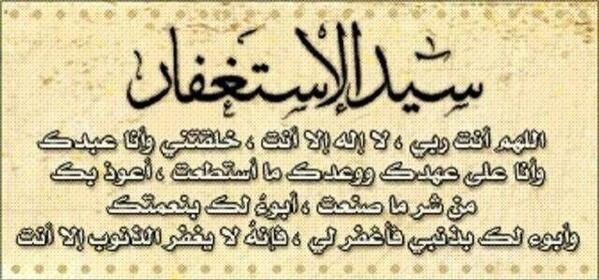 سيد الإستغفار
اللهم أنت ربي ، لا إله إلا أنت ، خلقتني وأنا عبدك
وأنا على عهدك ووعدك ما أستطعت ، أعوذ بك
من شر ما صنعت ، أبوءُ لك بنعمتك
وأبوء لك بذنبي فأغفر لي ، فإنهُ لا يغفر الذنوب إلا أنت